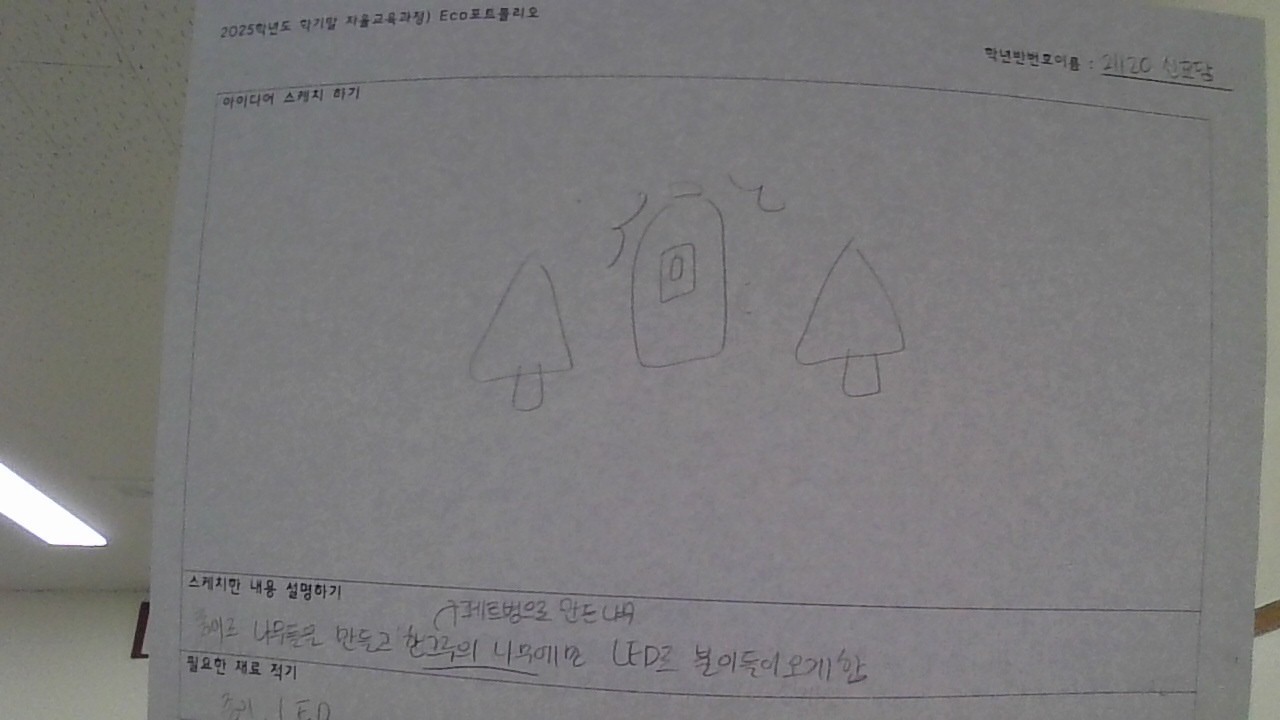 2025학년도 학기말 자율교육과정) Eco포트폴리오
학년반번호이름 : 21120
아이디어 스케치 하기
스케치한 내용 설명하기
페트병으로 만든 나무
종이로 나무들을 만들고 한그루의 나무에만 LED로 불이들어오게 함
필요한 재료 적기
종이, LED